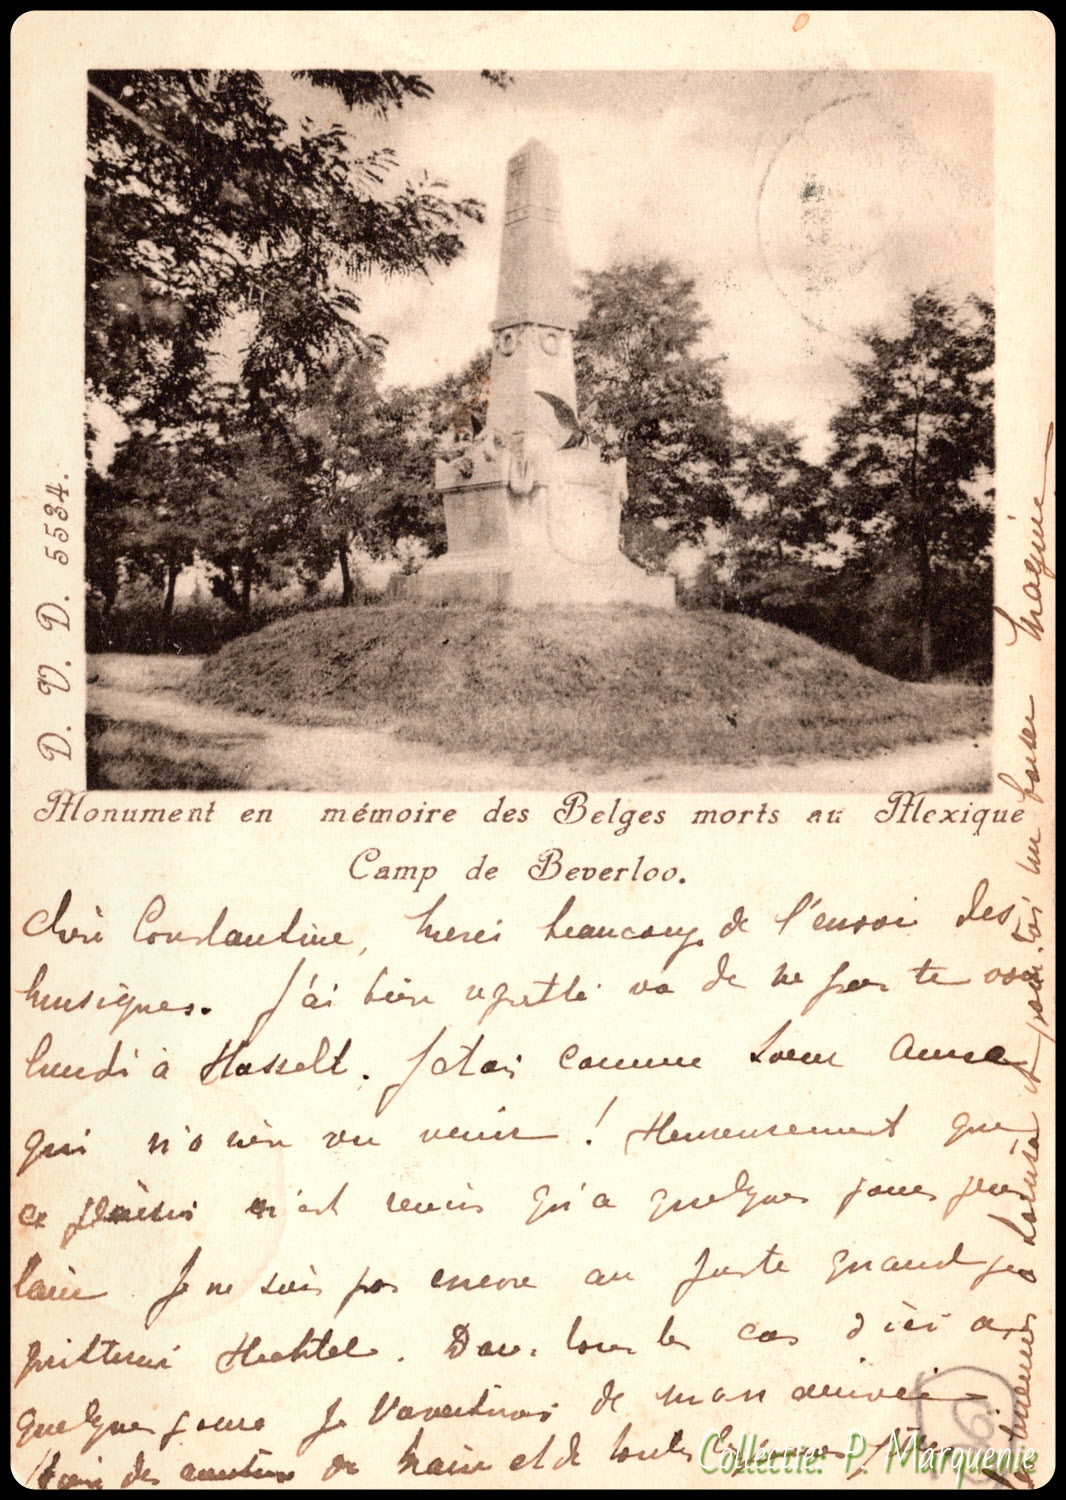 D. V. D. 5534.
Monument en mémoire des Belges morts au Mexique
Camp de Beverloo.
Chère Constantine, merci beaucoup de l'envoi des
musiques. J'ai bien regretté va de ne pas te voir
lundi à Hasselt. J'étais comme Soeur Anne
qui n'a rien vu venir ! Heureusement que
ce n'est remis qu'à quelques jours plus
loin Je ne sais pas encore au juste quand je
quitterai Hechtel. Dans tous les cas d'ici a
quelques jours je t'avertirai de mon arrivée
des de main et de toutes
Louisa et pour toi un baiser
Collectie: P. Marquenie